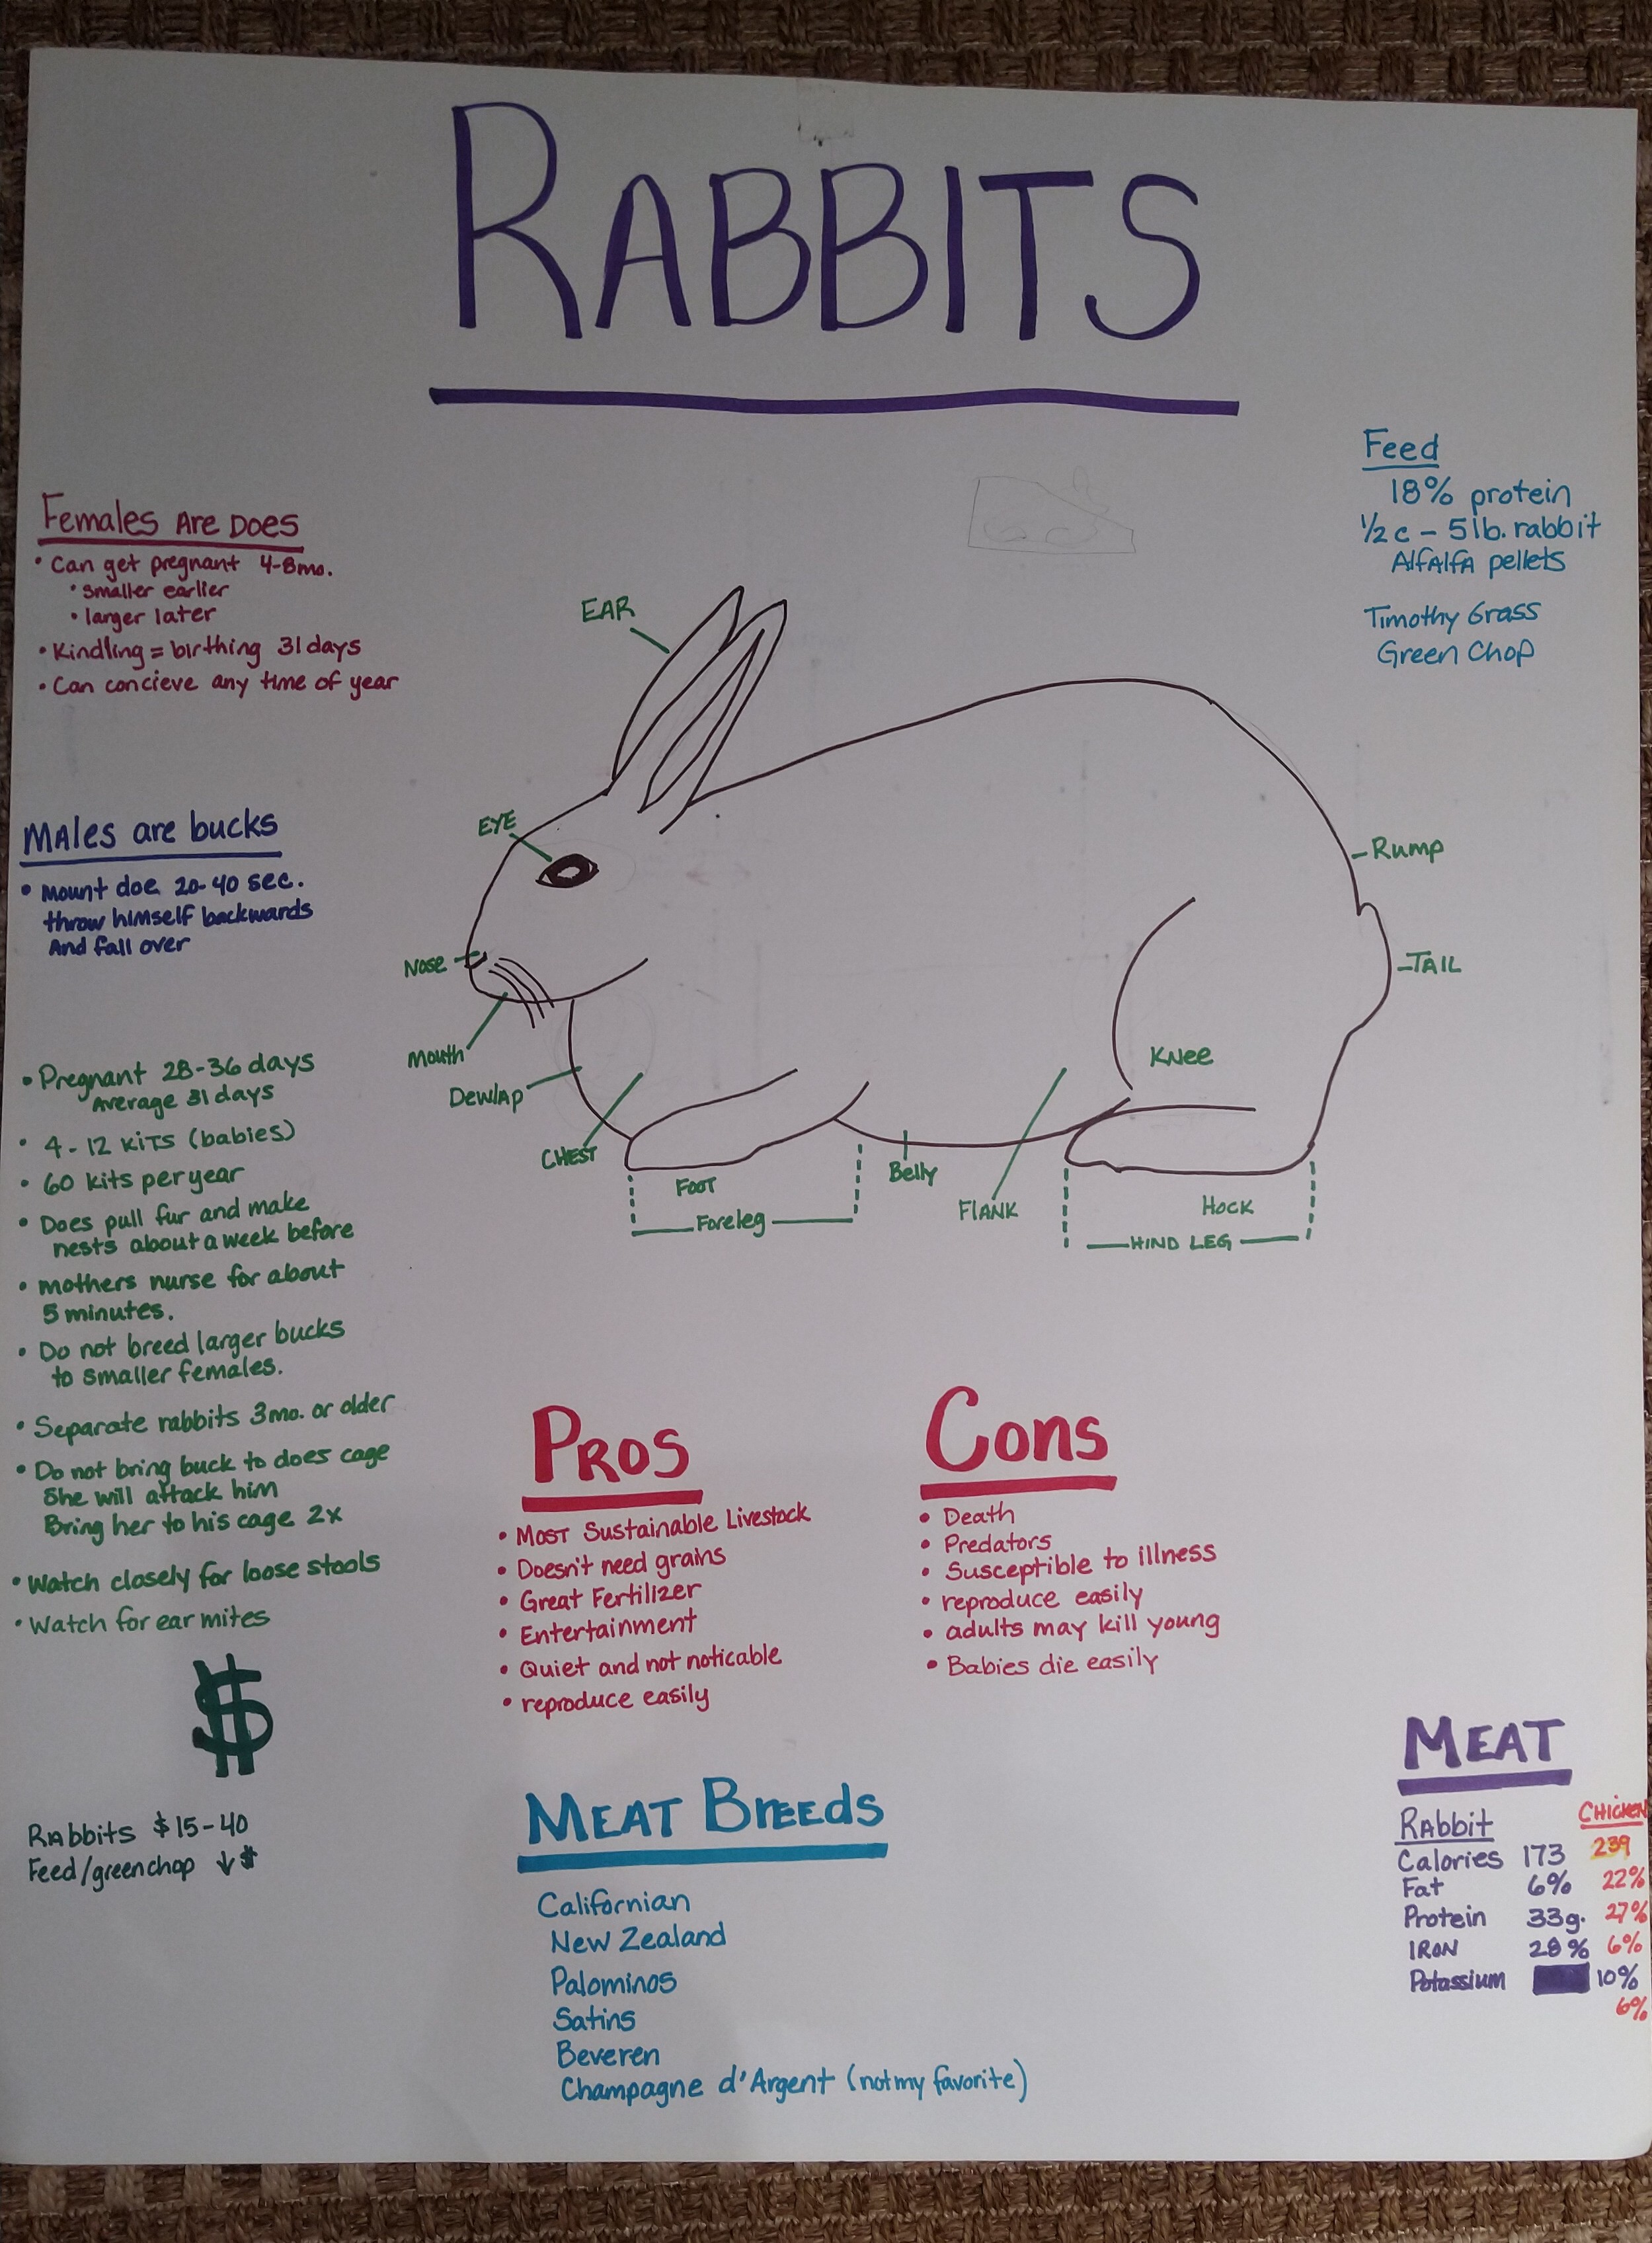 RABBITS
Females Are Does
• Can get pregnant 4-8mo.
• smaller earlier
• larger later
• Kindling = birthing 31 days
• Can concieve any time of year
Males are bucks
• Mount doe 20-40 sec.
throw himself backwards
And fall over
• Pregnant 28-36 days
Average 31 days
• 4-12 kits (babies)
• 60 kits per year
• Does pull fur and make
nests about a week before
• mothers nurse for about
5 minutes.
• Do not breed larger bucks
to smaller females.
• Separate rabbits 3mo. or older
• Do not bring buck to does cage
She will attack him
Bring her to his cage 2x
• Watch closely for loose stools
• Watch for ear mites
$
Rabbits $15-40
Feed/greenchop ↓$
Feed
18% protein
1/2 c - 5 lb. rabbit
Alfalfa pellets
Timothy Grass
Green Chop
EAR
EYE
Nose
Mouth
Dewlap
CHEST
FOOT
Foreleg
Belly
FLANK
Knee
Hock
HIND LEG
Rump
TAIL
PROS
• Most Sustainable Livestock
• Doesn't need grains
• Great Fertilizer
• Entertainment
• Quiet and not noticable
• reproduce easily
Cons
• Death
• Predators
• Susceptible to illness
• reproduce easily
• adults may kill young
• Babies die easily
MEAT BREEDS
Californian
New Zealand
Palominos
Satins
Beveren
Champagne d'Argent (not my favorite)
MEAT
Rabbit CHICKEN
Calories 173 239
Fat 6% 22%
Protein 33g. 27%
IRON 28% 6%
Potassium 10%
6%